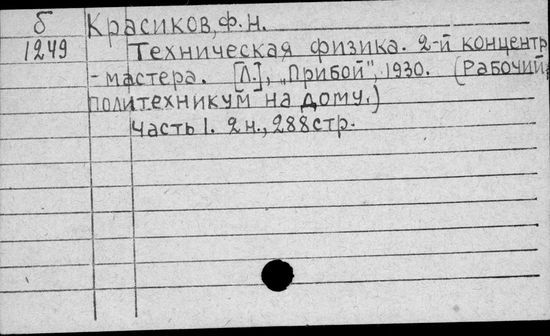 б
1249
Красиков, Ф.Н.
Техническая физика. 2-й концентр
- мастера. [Л.], „Прибой", 1930. (Рабочий
политехникум на дому.)
Часть 1. 2н., 288стр.